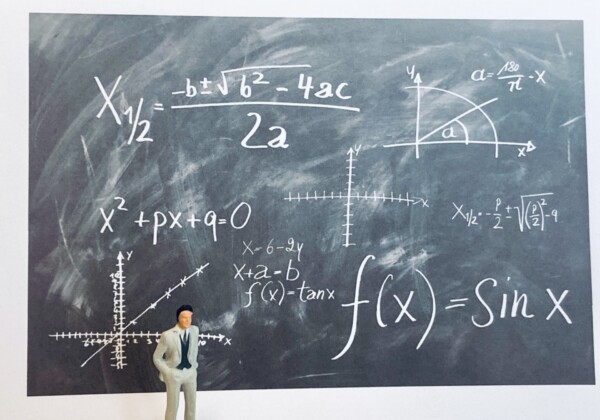 X₁/₂ = (-b ± √(b² - 4ac)) / 2a
y
a = 180/π · x
a
x
y
x
x² + px + q = 0
X₁/₂ = -p/2 ± √((p/2)² - q)
x - 6 - 2y
x + a - b
f(x) = tanx
f(x) = Sin x
y
x